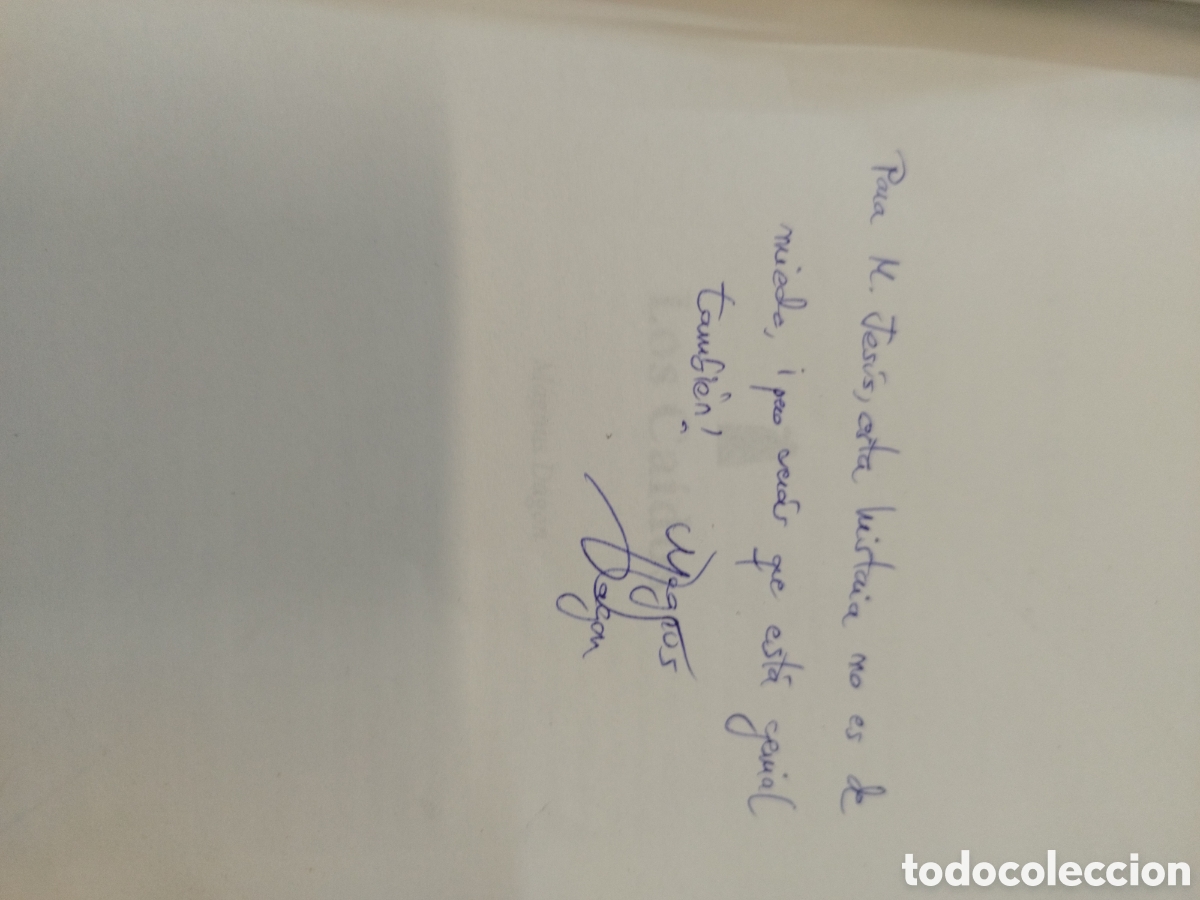 Para M. Jesús, esta historia no es de
miedo, ¡pero verás que está genial
también,
Magnus
Dagon
Los Caídos
Magnus Dagon
todocoleccion